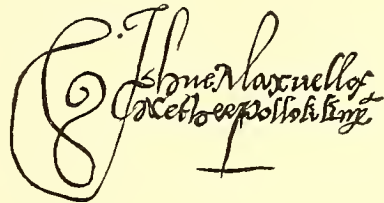 Jhone Maxuell of
Nether pollok knyt